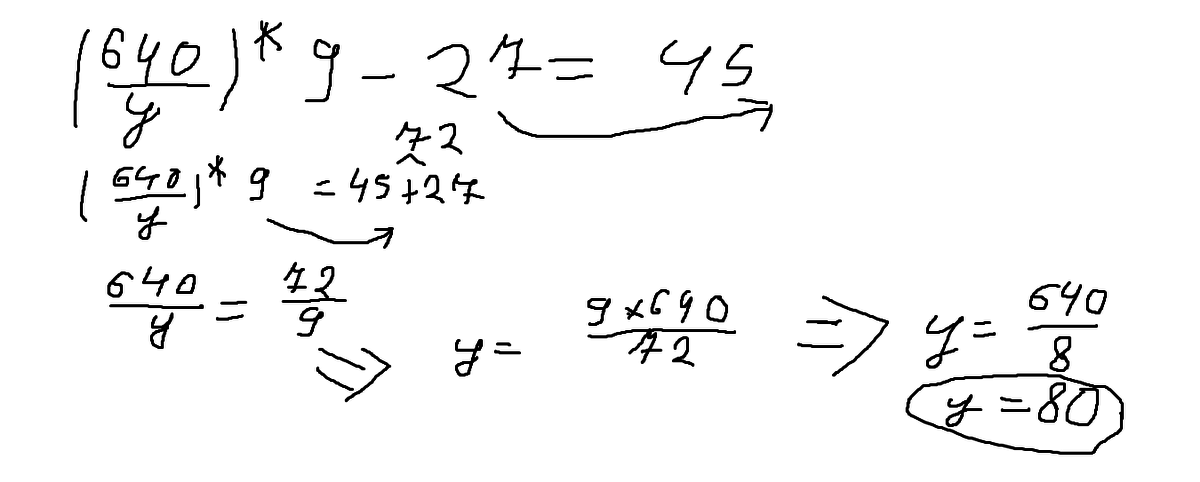 (640/y)* 9 - 27 = 45
72
(640/y)* 9 = 45+27
640/y = 72/9 => y = 9×640/72 => y = 640/8
y = 80